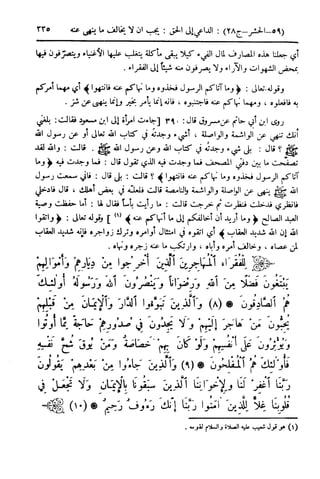 (٥٩-الحشر-ج٢٨) : الداعي إلى الحق : يجب ان لا يخالف ما ينهى عنه ٣٣٥
أي جعلنا هذه المصارف لمال الفيء كيلا يبقى مأكلة يتغلب عليها الأغنياء ويتصرفون فيها
بمحض الشهوات والآراء ولا يصرفون منه شيئاً إلى الفقراء .
وقوله تعالى : ﴿ وما آتاكم الرسول فخذوه وما نهاكم عنه فانتهوا ﴾ أي مهما أمركم
به فافعلوه ، ومهما نهاكم عنه فاجتنبوه ، فإنه إنما يأمر بخير وإنما ينهى عن شر .
روى ابن أبي حاتم عن مسروق قال : ٣٩٠ [ جاءت امرأة إلى ابن مسعود فقالت : بلغني
أنك تنهى عن الواشمة والواصلة ، أشيء وجدته في كتاب الله تعالى أو عن رسول الله
ﷺ ؟ قال : بلى شيء وجدته في كتاب الله وعن رسول الله ﷺ . قالت : والله لقد
تصفحت ما بين دفتي المصحف فما وجدت فيه الذي تقول قال : فما وجدت فيه ﴿ وما
آتاكم الرسول فخذوه وما نهاكم عنه فانتهوا ﴾ ؟ قالت : بلى قال : فاني سمعت رسول
الله ﷺ ينهى عن الواصلة والواشمة والنامصة قالت فلعله في بعض أهلك ، قال فادخلي
فانظري فدخلت فنظرت ثم خرجت قالت : ما رأيت بأساً فقال لها : أما حفظت وصية
العبد الصالح ﴿ وما أريد أن أخالفكم إلى ما أنهاكم عنه ﴾ (١) ] وقوله تعالى : ﴿ واتقوا
الله إن الله شديد العقاب ﴾ أي اتقوه في امتثال أوامره وترك زواجره فإنه شديد العقاب
لمن عصاه ، وخالف أمره وأباه ، وارتكب ما عنه زجره ونهاه .
لِلْفُقَرَاءِ الْمُهَاجِرِينَ الَّذِينَ أُخْرِجُوا مِن دِيَارِهِمْ وَأَمْوَالِهِمْ
يَبْتَغُونَ فَضْلًا مِّنَ اللَّهِ وَرِضْوَانًا وَيَنصُرُونَ اللَّهَ وَرَسُولَهُ أُولَٰئِكَ
هُمُ الصَّادِقُونَ * (٨) وَالَّذِينَ تَبَوَّءُوا الدَّارَ وَالْإِيمَانَ مِن قَبْلِهِمْ
يُحِبُّونَ مَنْ هَاجَرَ إِلَيْهِمْ وَلَا يَجِدُونَ فِي صُدُورِهِمْ حَاجَةً مِّمَّا أُوتُوا
وَيُؤْثِرُونَ عَلَىٰ أَنفُسِهِمْ وَلَوْ كَانَ بِهِمْ خَصَاصَةٌ وَمَن يُوقَ شُحَّ نَفْسِهِ
فَأُولَٰئِكَ هُمُ الْمُفْلِحُونَ * (٩) وَالَّذِينَ جَاءُوا مِن بَعْدِهِمْ يَقُولُونَ
رَبَّنَا اغْفِرْ لَنَا وَلِإِخْوَانِنَا الَّذِينَ سَبَقُونَا بِالْإِيمَانِ وَلَا تَجْعَلْ فِي
قُلُوبِنَا غِلًّا لِّلَّذِينَ ءَامَنُوا رَبَّنَا إِنَّكَ رَءُوفٌ رَّحِيمٌ * (١٠)
(١) هو قول شعيب عليه الصلاة والسلام لقومه .